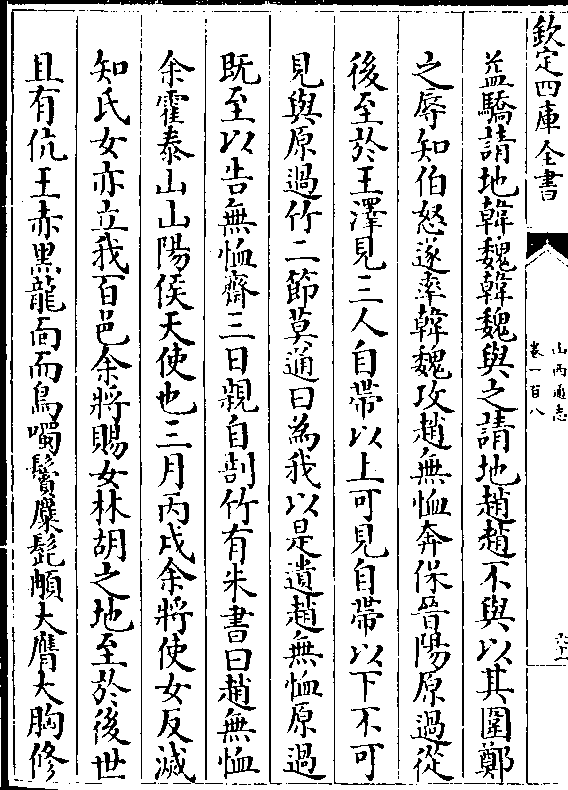 欽定四庫全書
山西通志
卷一百八
益驕請地韓魏韓魏與之請地趙趙不與以其圍鄭
之辱知伯怒遂率韓魏攻趙無恤奔保晉陽原過從
後至於王澤見三人自帶以上可見自帶以下不可
見與原過竹二節莫通曰為我以是遺趙無恤原過
既至以告無恤齋三日親自剖竹有朱書曰趙無恤
余霍泰山山陽侯天使也三月丙戌余將使女反滅
知氏女亦立我百邑余將賜女林胡之地至於後世
且有伉王赤黑龍面而鳥噣鬢麋髭䫇大膺大胸修